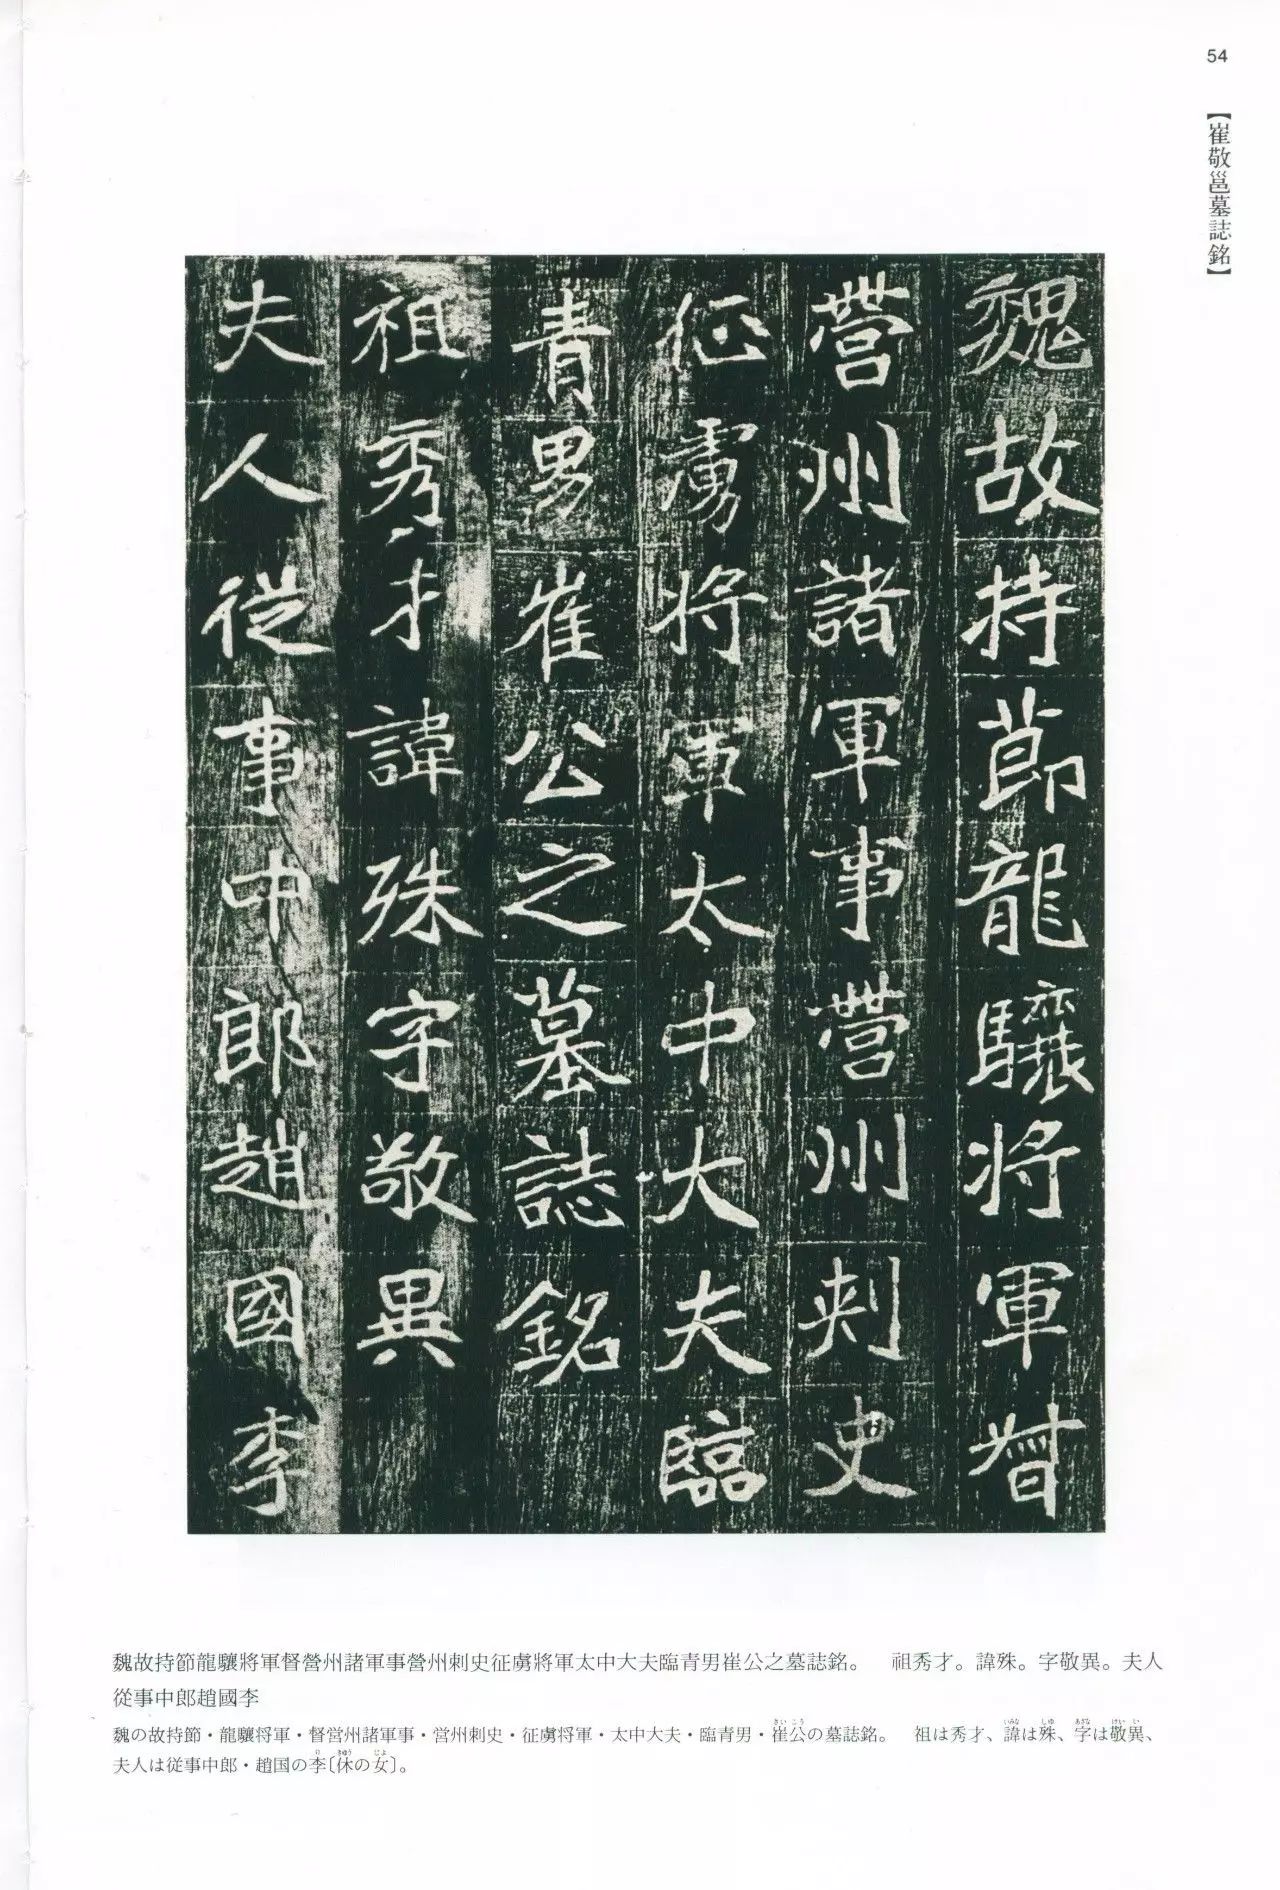 54
【崔敬邕墓誌銘】
魏故持節龍驤將軍督
營州諸軍事營州刺史
征虜將軍太中大夫臨
青男崔公之墓誌銘
祖秀才諱殊字敬異
夫人從事中郎趙國李
魏故持節龍驤將軍督營州諸軍事營州刺史征虜將軍太中大夫臨青男崔公之墓誌銘。　祖秀才。諱殊。字敬異。夫人
從事中郎趙國李
魏の故持節・龍驤将軍・督営州諸軍事・営州刺史・征虜将軍・太中大夫・臨青男・崔公の墓誌銘。　祖は秀才、諱は殊、字は敬異、
夫人は従事中郎・趙国の李〔休の女〕。